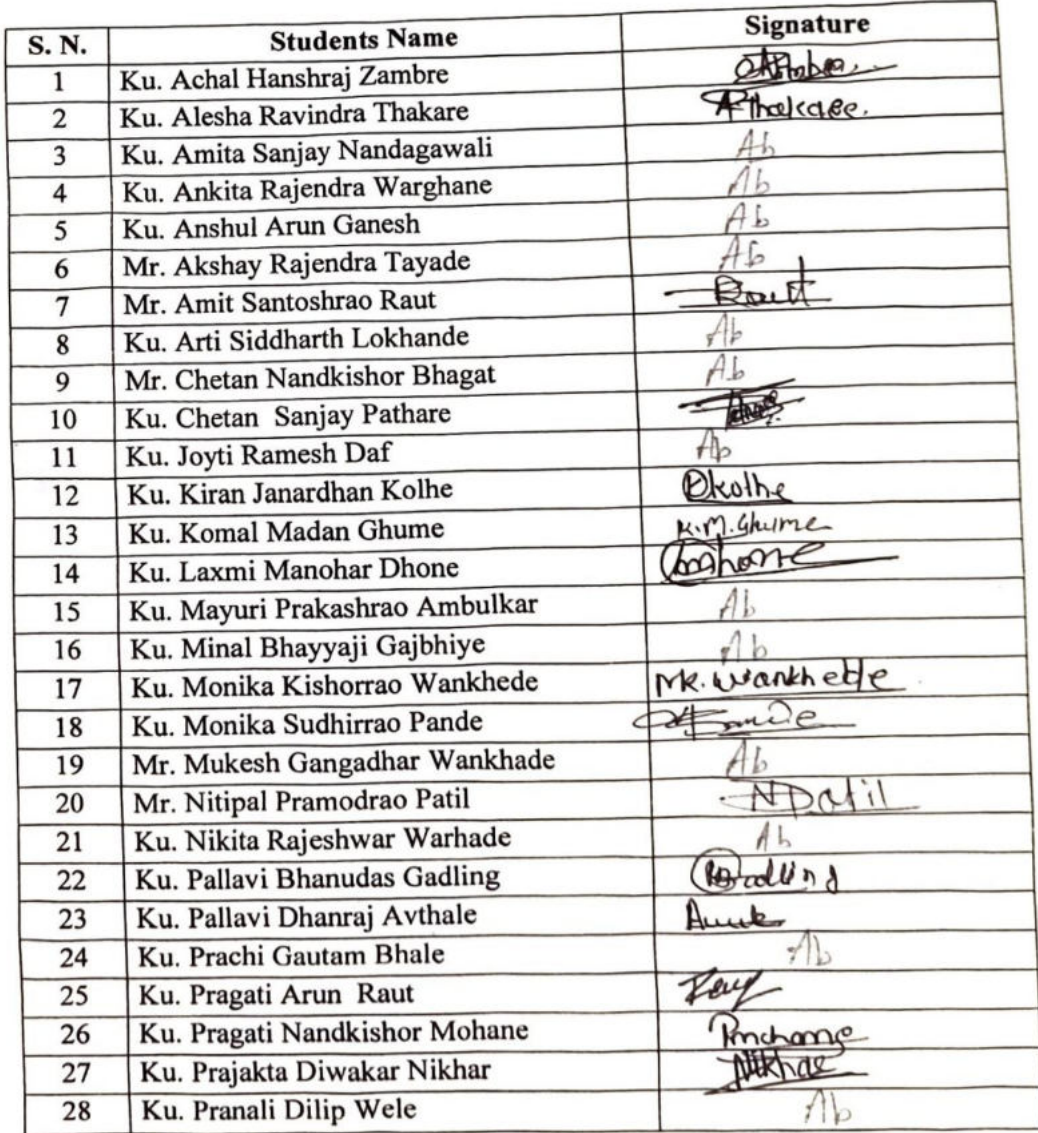 S. N. Students Name Signature
1 Ku. Achal Hanshraj Zambre
2 Ku. Alesha Ravindra Thakare AThakaee.
3 Ku. Amita Sanjay Nandagawali Ab
4 Ku. Ankita Rajendra Warghane Ab
5 Ku. Anshul Arun Ganesh Ab
6 Mr. Akshay Rajendra Tayade Ab
7 Mr. Amit Santoshrao Raut Raut
8 Ku. Arti Siddharth Lokhande Ab
9 Mr. Chetan Nandkishor Bhagat Ab
10 Ku. Chetan Sanjay Pathare
11 Ku. Joyti Ramesh Daf Ab
12 Ku. Kiran Janardhan Kolhe Kolhe
13 Ku. Komal Madan Ghume K.M.Ghume
14 Ku. Laxmi Manohar Dhone
15 Ku. Mayuri Prakashrao Ambulkar Ab
16 Ku. Minal Bhayyaji Gajbhiye Ab
17 Ku. Monika Kishorrao Wankhede Mk. Wankhede
18 Ku. Monika Sudhirrao Pande
19 Mr. Mukesh Gangadhar Wankhade Ab
20 Mr. Nitipal Pramodrao Patil NPatil
21 Ku. Nikita Rajeshwar Warhade Ab
22 Ku. Pallavi Bhanudas Gadling
23 Ku. Pallavi Dhanraj Avthale
24 Ku. Prachi Gautam Bhale Ab
25 Ku. Pragati Arun Raut
26 Ku. Pragati Nandkishor Mohane Pmohane
27 Ku. Prajakta Diwakar Nikhar
28 Ku. Pranali Dilip Wele Ab